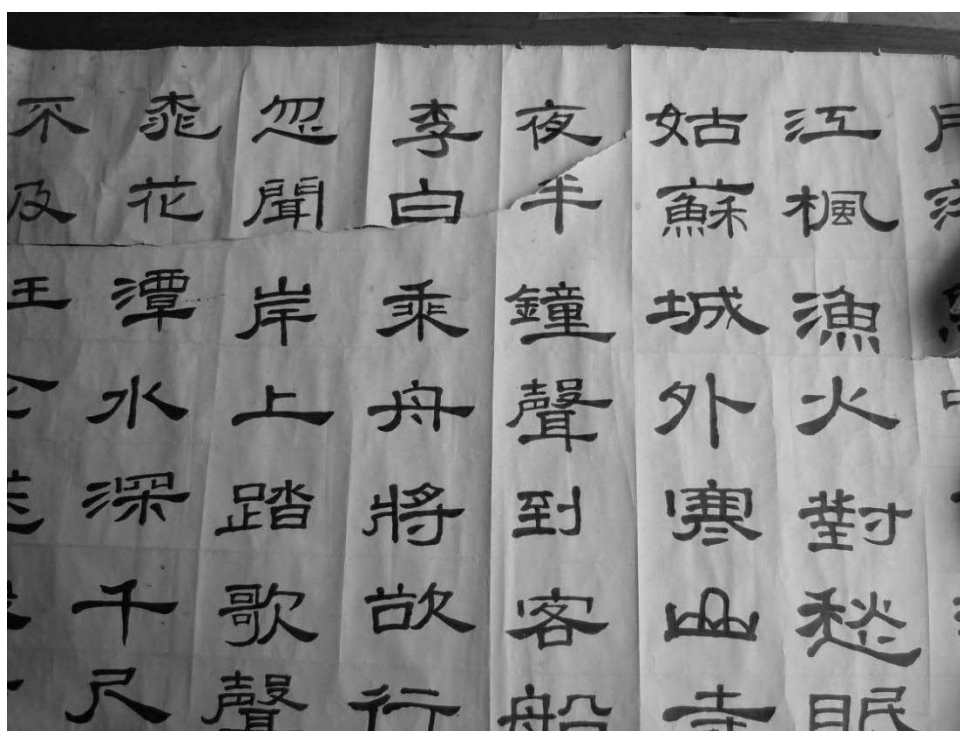 江楓漁火對愁眠
姑蘇城外寒山寺
夜半鐘聲到客船
李白乘舟將欲行
忽聞岸上踏歌聲
桃花潭水深千尺
不及